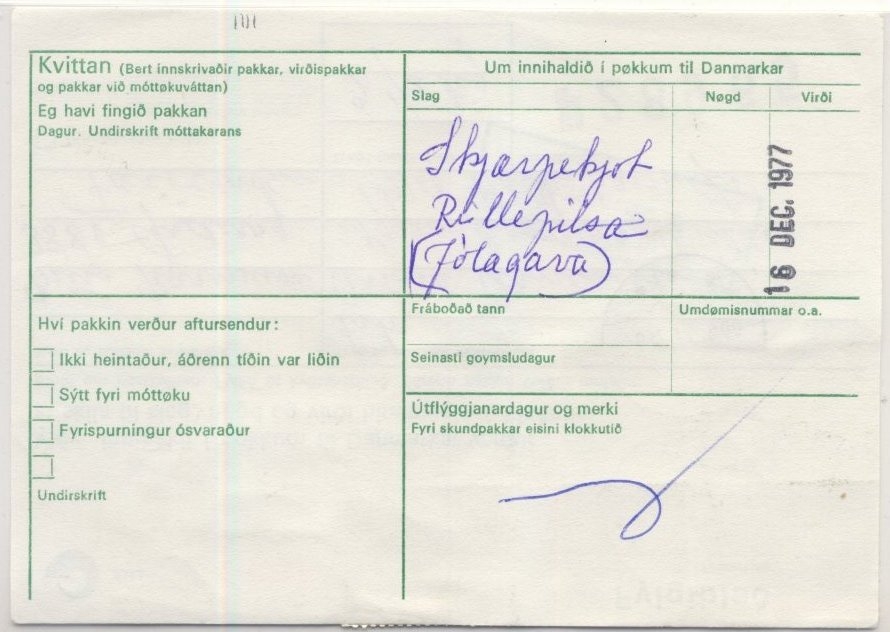 Kvittan (Bert innskrivaðir pakkar, virðispakkar
og pakkar við móttøkuváttan)
Eg havi fingið pakkan
Dagur. Undirskrift móttakarans
Um innihaldið í pøkkum til Danmarkar
Slag
Nøgd
Virði
Skjærpekjøt
Rullepilsa
(Jólagáva)
16 DEC. 1977
Hví pakkin verður aftursendur:
Ikki heintaður, áðrenn tíðin var liðin
Sýtt fyri móttøku
Fyrispurningur ósvaraður
Undirskrift
Fráboðað tann
Umdømisnummar o.a.
Seinasti goymsludagur
Útflýggjanardagur og merki
Fyri skundpakkar eisini klokkutíð